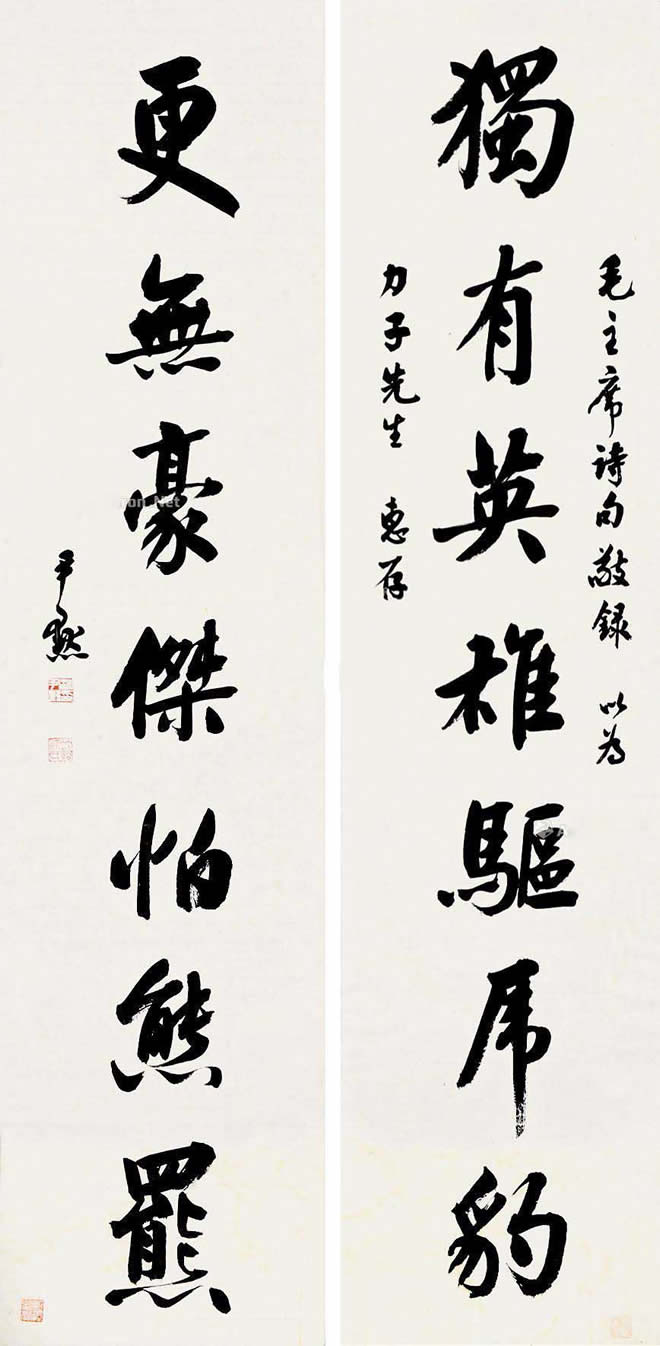 毛主席詩句敬録 以為
獨有英雄驅虎豹
力子先生 惠存
更無豪傑怕熊羆
尹默